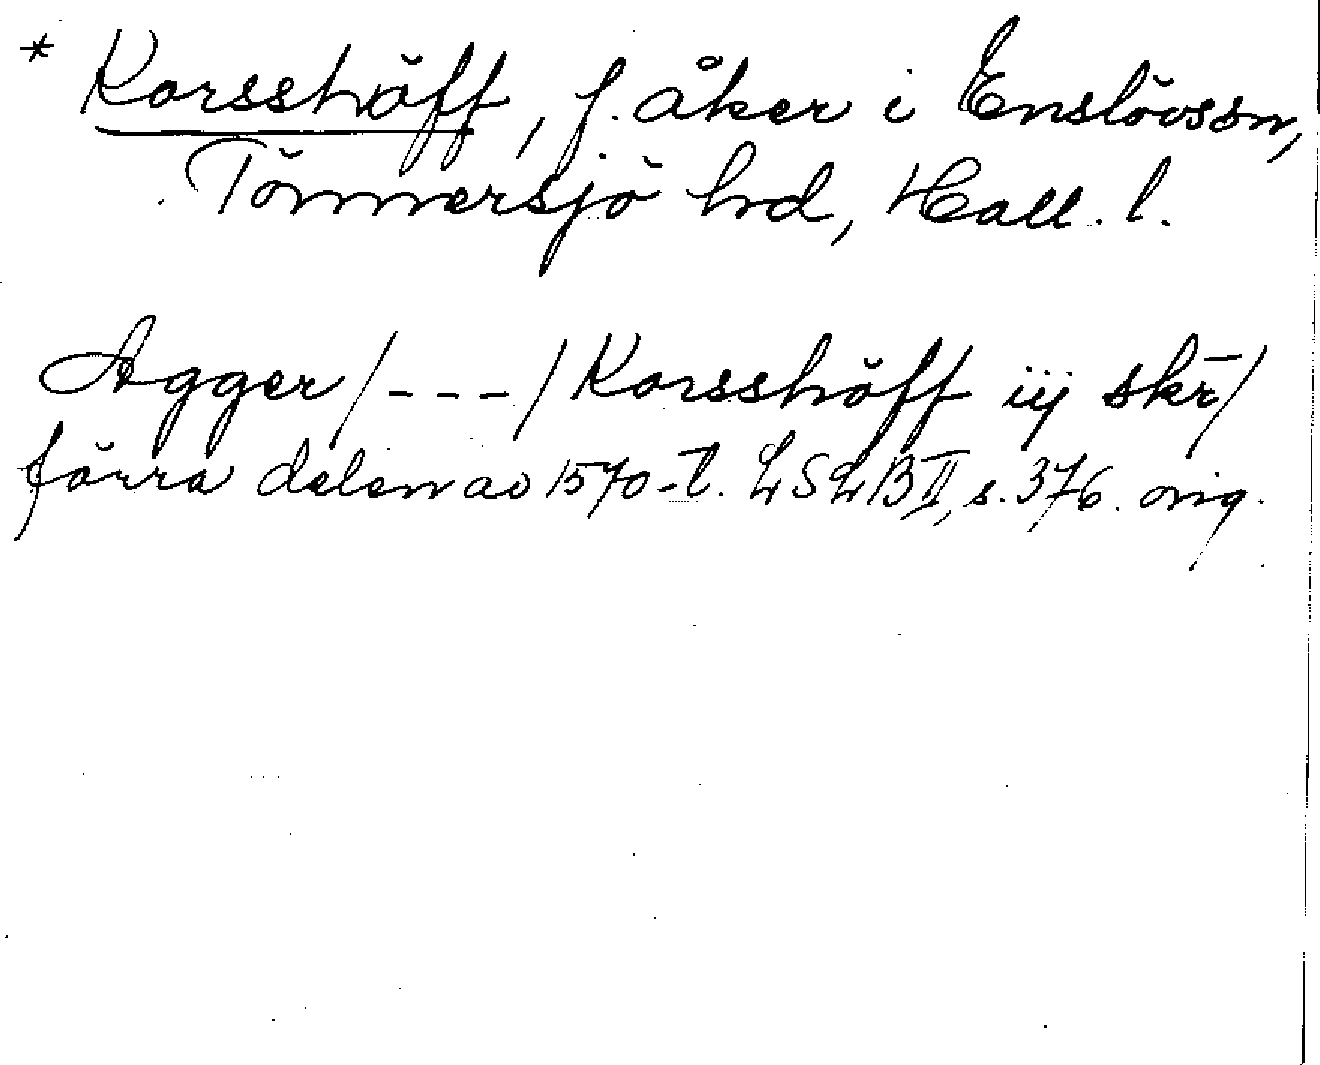 * Korsshöff, f. åker i Enslövssn,
Tönnersjö hrd, Hall. l.
Agger/---/Korsshöff iij skr̄/
förra delen av 1570-t. LSLB II, s. 376. orig.